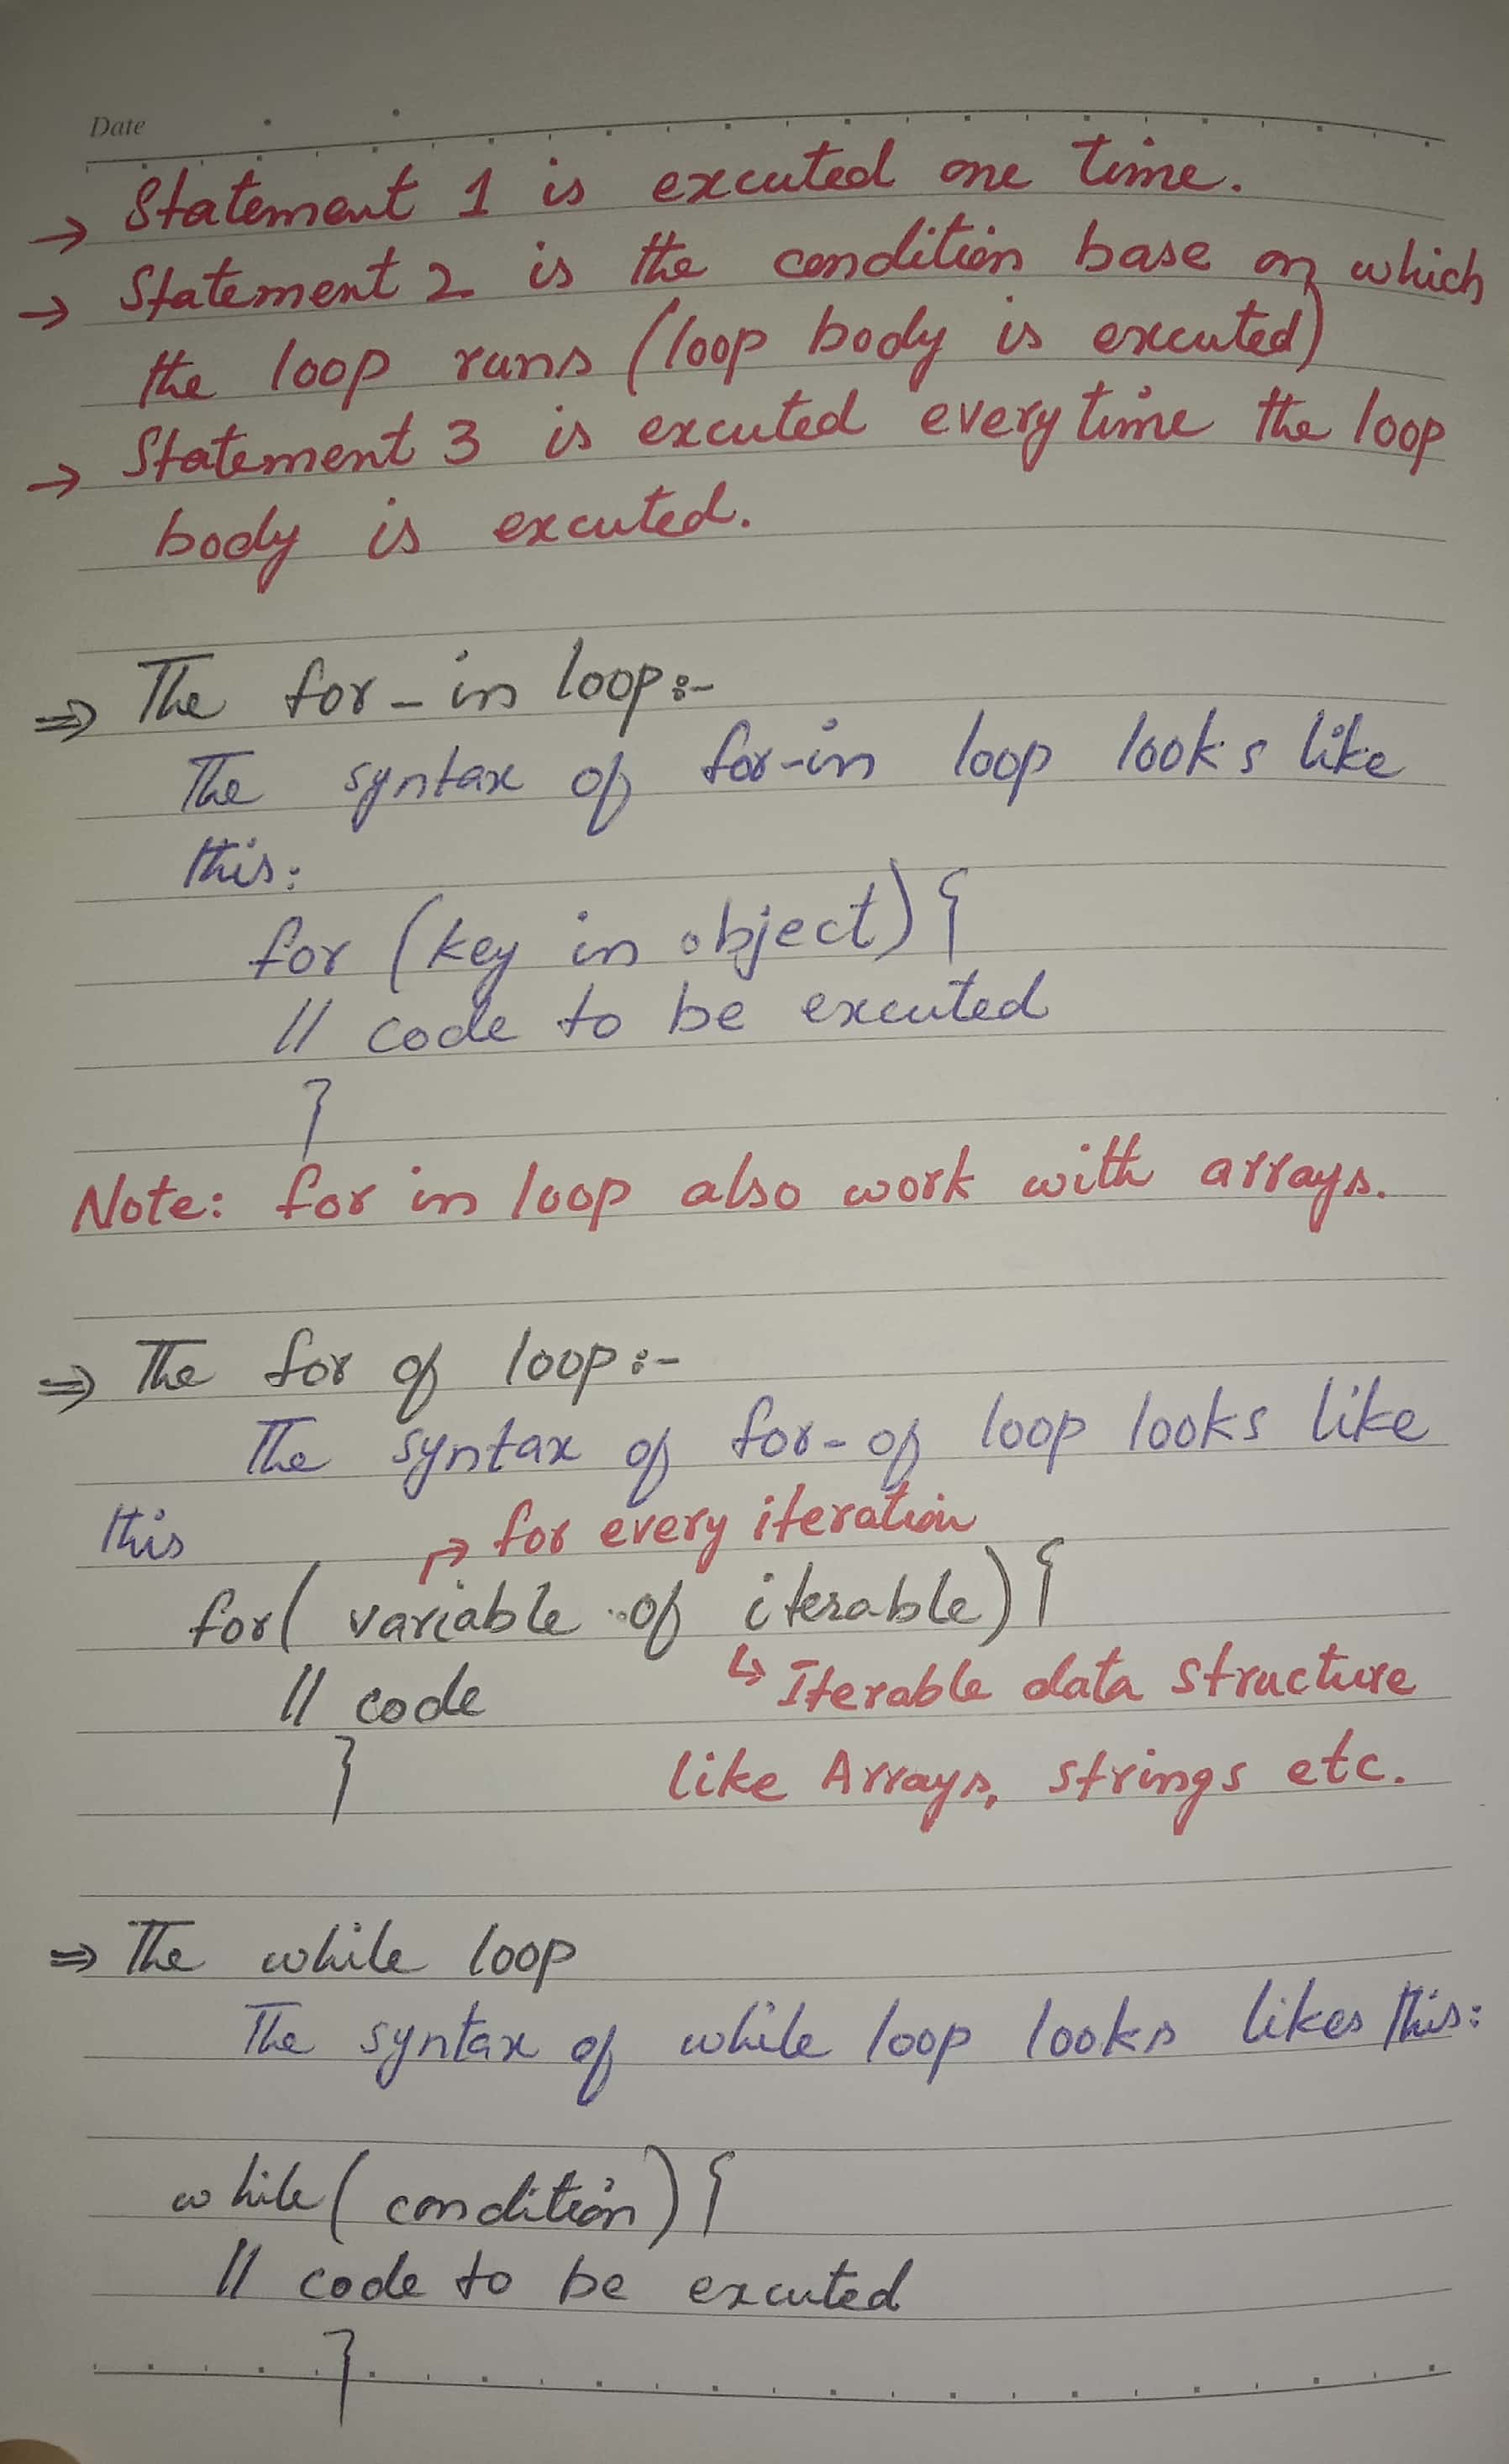 Date
→ Statement 1 is excuted one time.
→ Statement 2 is the condition base on which
the loop runs (loop body is excuted)
→ Statement 3 is excuted every time the loop
body is excuted.
⇒ The for-in loop:-
The syntax of for-in loop looks like
this:
for (key in object) {
// code to be excuted
}
Note: for in loop also work with arrays.
⇒ The for of loop:-
The syntax of for-of loop looks like
this
↱ for every iteration
for( variable of iterable) {
↳ Iterable data structure
// code
} like Arrays, strings etc.
⇒ The while loop
The syntax of while loop looks likes this:
while( condition) {
// code to be excuted
}